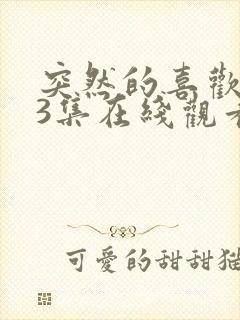 突然的喜歡
3集在綫觀看
可愛的甜甜猫